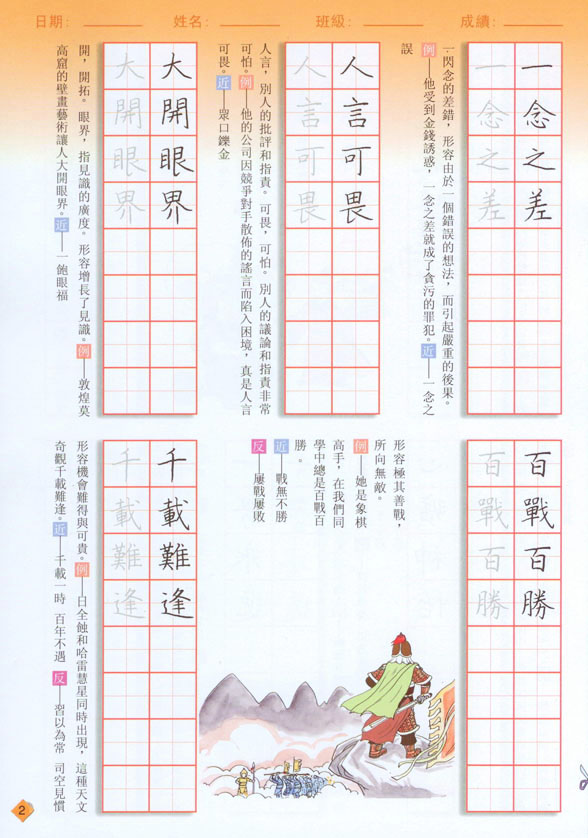 日期： 姓名： 班級： 成績：
一念之差
一念之差
一閃念的差錯，形容由於一個錯誤的想法，而引起嚴重的後果。
例——他受到金錢誘惑，一念之差就成了貪污的罪犯。近——一念之
誤
人言可畏
人言可畏
人言，別人的批評和指責。可畏，可怕。別人的議論和指責非常
可怕。例——他的公司因競爭對手散佈的謠言而陷入困境，真是人言
可畏。近——眾口鑠金
大開眼界
大開眼界
開，開拓。眼界，指見識的廣度。形容增長了見識。例——敦煌莫
高窟的壁畫藝術讓人大開眼界。近——一飽眼福
百戰百勝
百戰百勝
形容極其善戰，
所向無敵。
例——她是象棋
高手，在我們同
學中總是百戰百
勝。
近——戰無不勝
反——屢戰屢敗
千載難逢
千載難逢
形容機會難得與可貴。例——日全蝕和哈雷慧星同時出現，這種天文
奇觀千載難逢。近——千載一時 百年不遇 反——習以為常 司空見慣
2